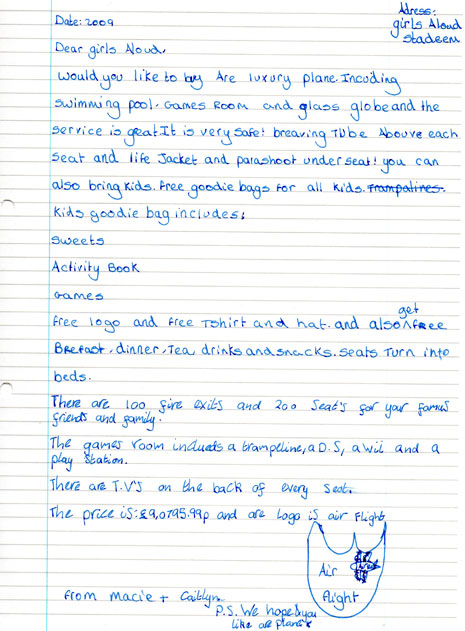 Adress:
Date: 2009
girls Aloud
stadeem
Dear girls Aloud,
Would you like to buy Are luxury plane. Incuding
swimming pool. Games Room and glass globe and the
service is great It is very safe! breaving Tube Abouve each
seat and life Jacket and parashoot under seat! you can
also bring kids. free goodie bags for all kids. Trampalines.
Kids goodie bag includes:
sweets
Activity Book
games
get
free logo and free Tshirt and hat. and also ^ free
Brefast, dinner, Tea, drinks and snacks. seats Turn into
beds.
There are 100 fire exits and 200 Seat's for your famus
friends and family.
The games room includs a trampeline, a D.S, a wii and a
play station.
There are T.V's on the back of every Seat.
The price is: £9,0795.99p and are logo is air flight
Air
flight
from macie + Caitlyn.
P.S. We hope you
like are plane x